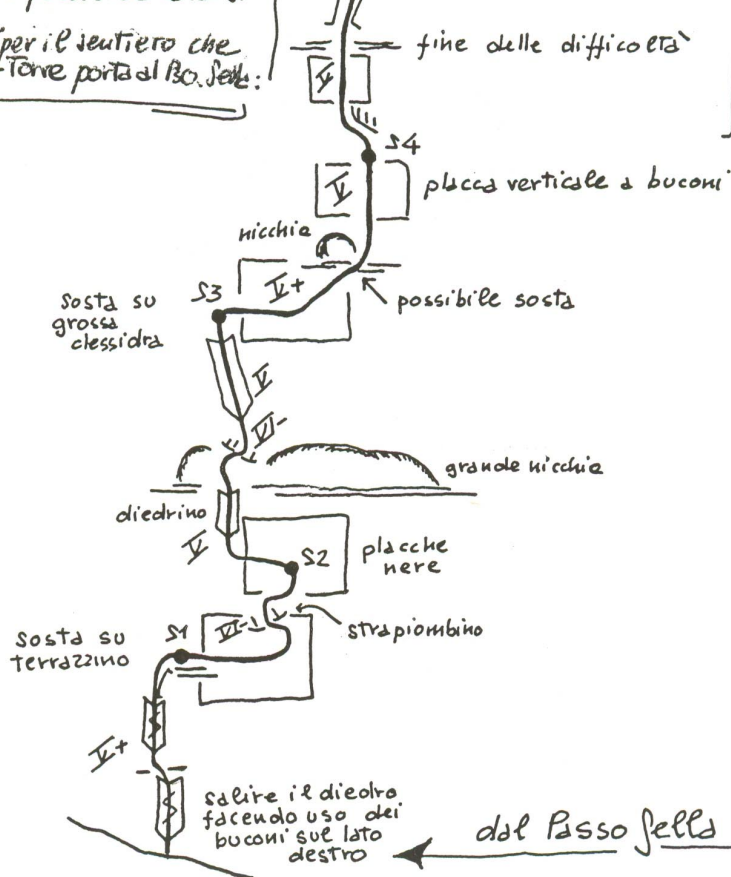 per il sentiero che
Torre porta al
fine delle difficoltà
V
S4
V
placca verticale a buconi
nicchia
V+
possibile sosta
S3
Sosta su
grossa
clessidra
V
VI-
grande nicchia
diedrino
V
S2
placche
nere
VI-
strapiombino
S1
Sosta su
terrazzino
V+
salire il diedro
facendo uso dei
buconi sul lato
destro
dal Passo Sella